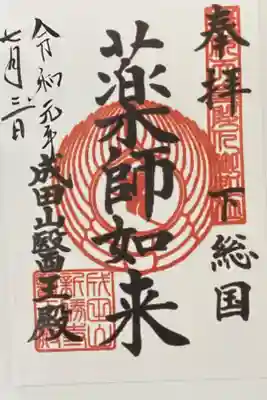 奉拝
下総国
薬師如来
成田山醫王殿
令和元年
七月三十一日
成田山
新勝寺